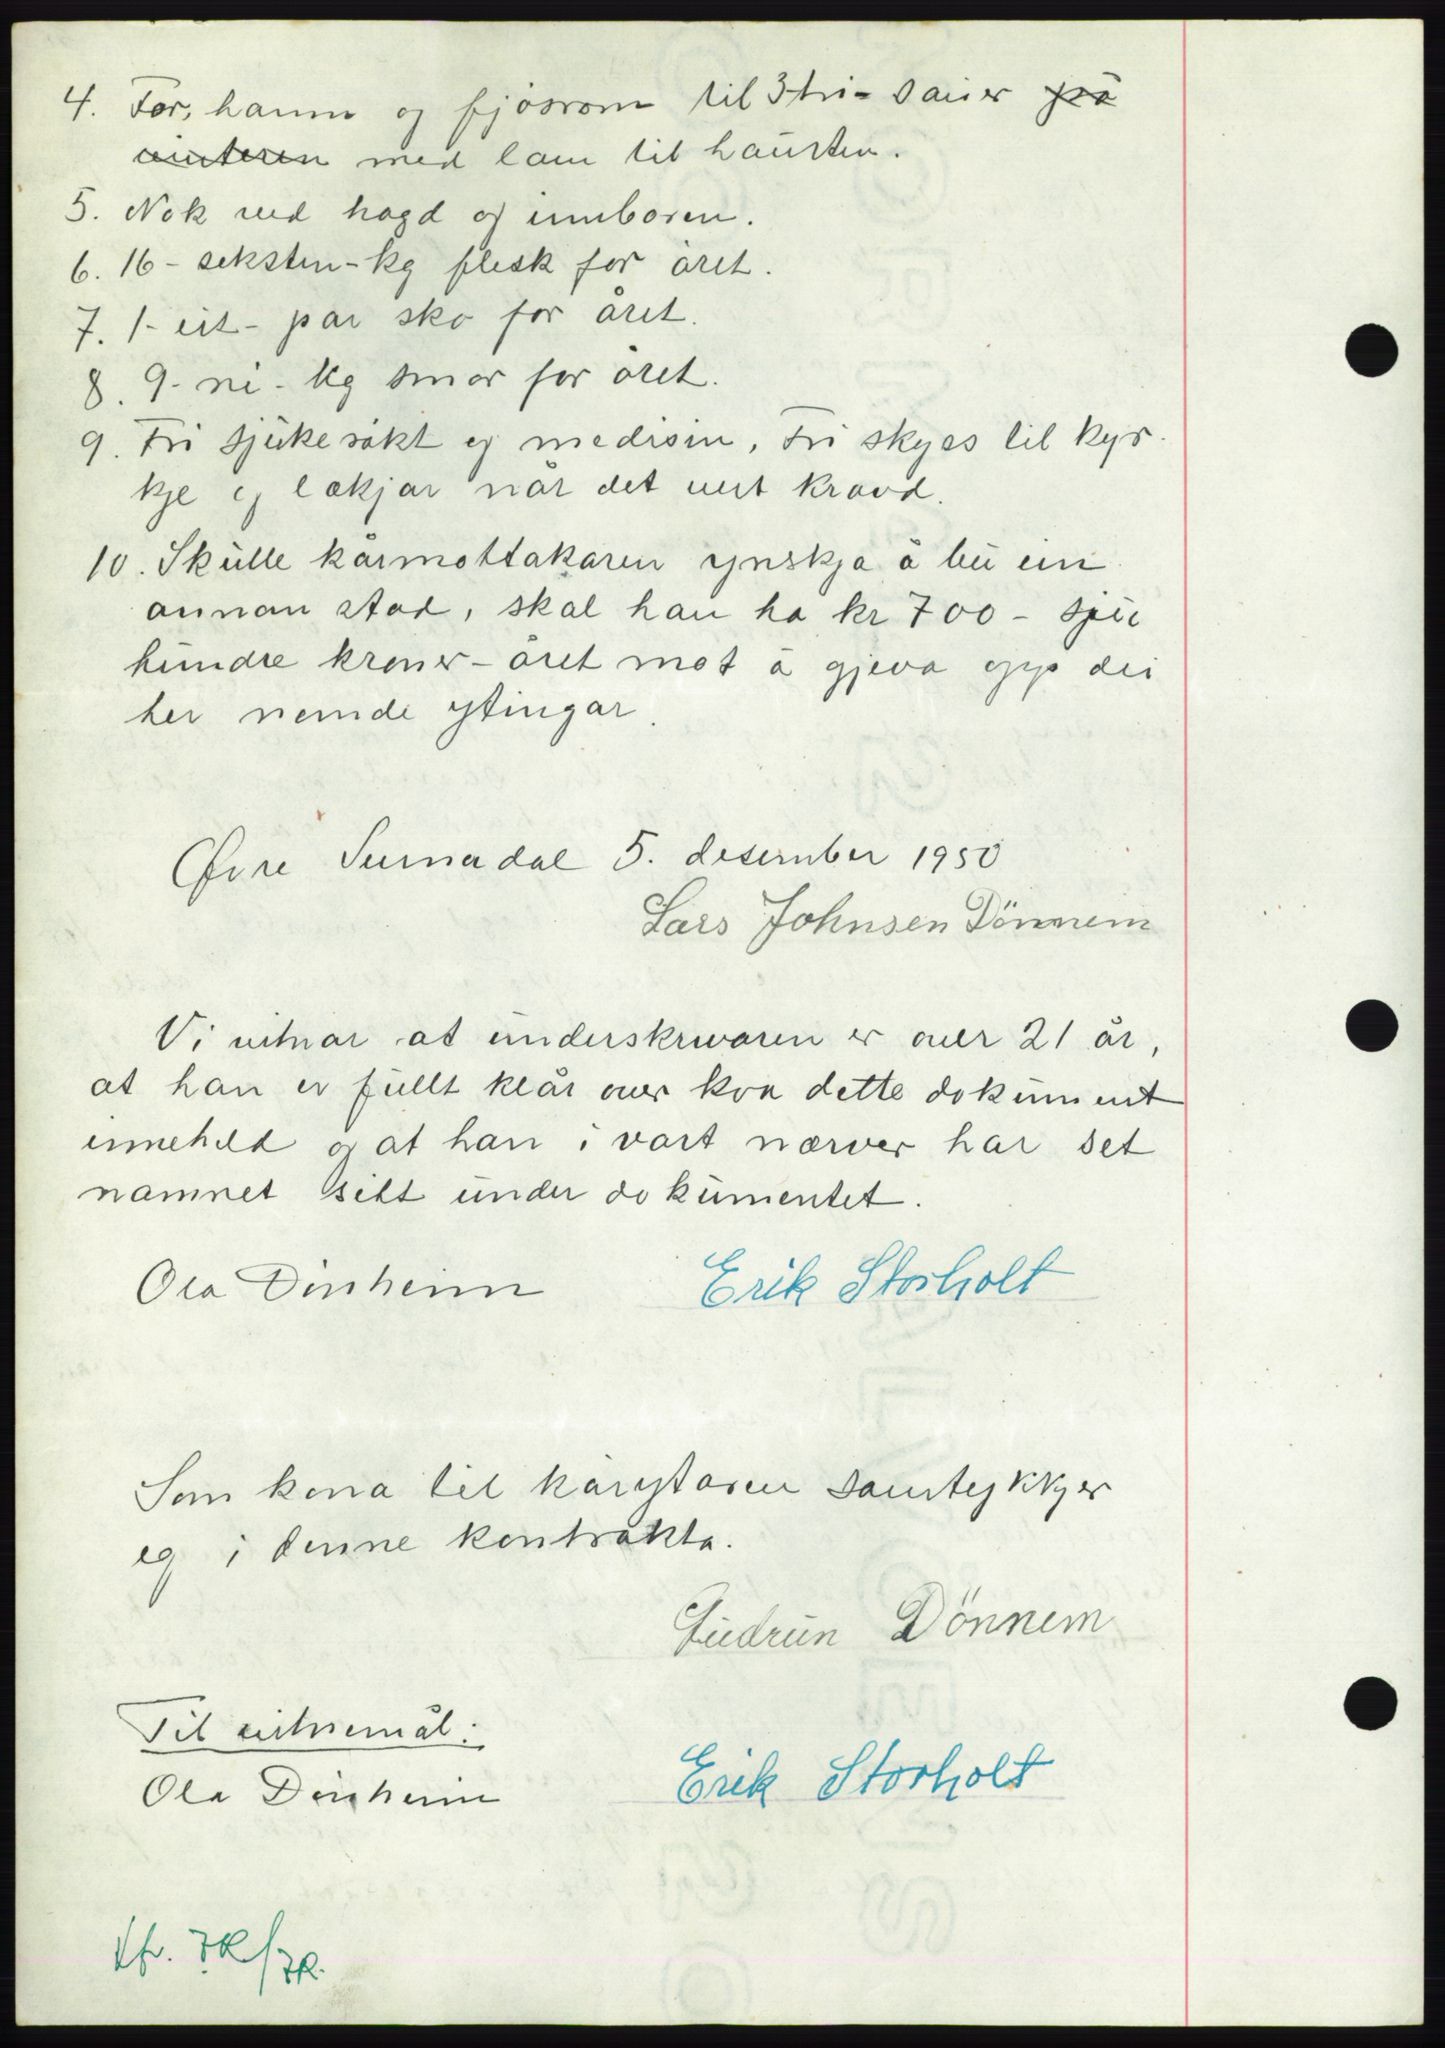 4. For, hamn og fjøsrom til 3-tri- sauer på
vinteren med lam til hausten.
5. Nok ved hogd og innboren.
6. 16- seksten-kg flesk for året.
7. 1- eit- par sko for året.
8. 9- ni- kg smør for året.
9. Fri sjukesøkt og medisin, Fri skyss til kyr-
kje og lækjar når det vert kravd.
10. Skulle kårmottakaren ynskja å bu ein
annan stad, skal han ha kr 700- sju
hundre kroner- året mot å gjeva opp dei
her nemde ytingar.
Øvre Surnadal 5. desember 1950
Lars Johnsen Dönnem
Vi vitnar at underskrivaren er over 21 år,
at han er fullt klår over kva dette dokument
inneheld og at han i vårt nærver har set
namnet sitt under dokumentet.
Ola Dønheim Erik Storholt
Som kona til kårytaren samtykkjer
eg i denne kontrakta.
Gudrun Dönnem
Til vitnemål:
Ola Dønheim Erik Storholt